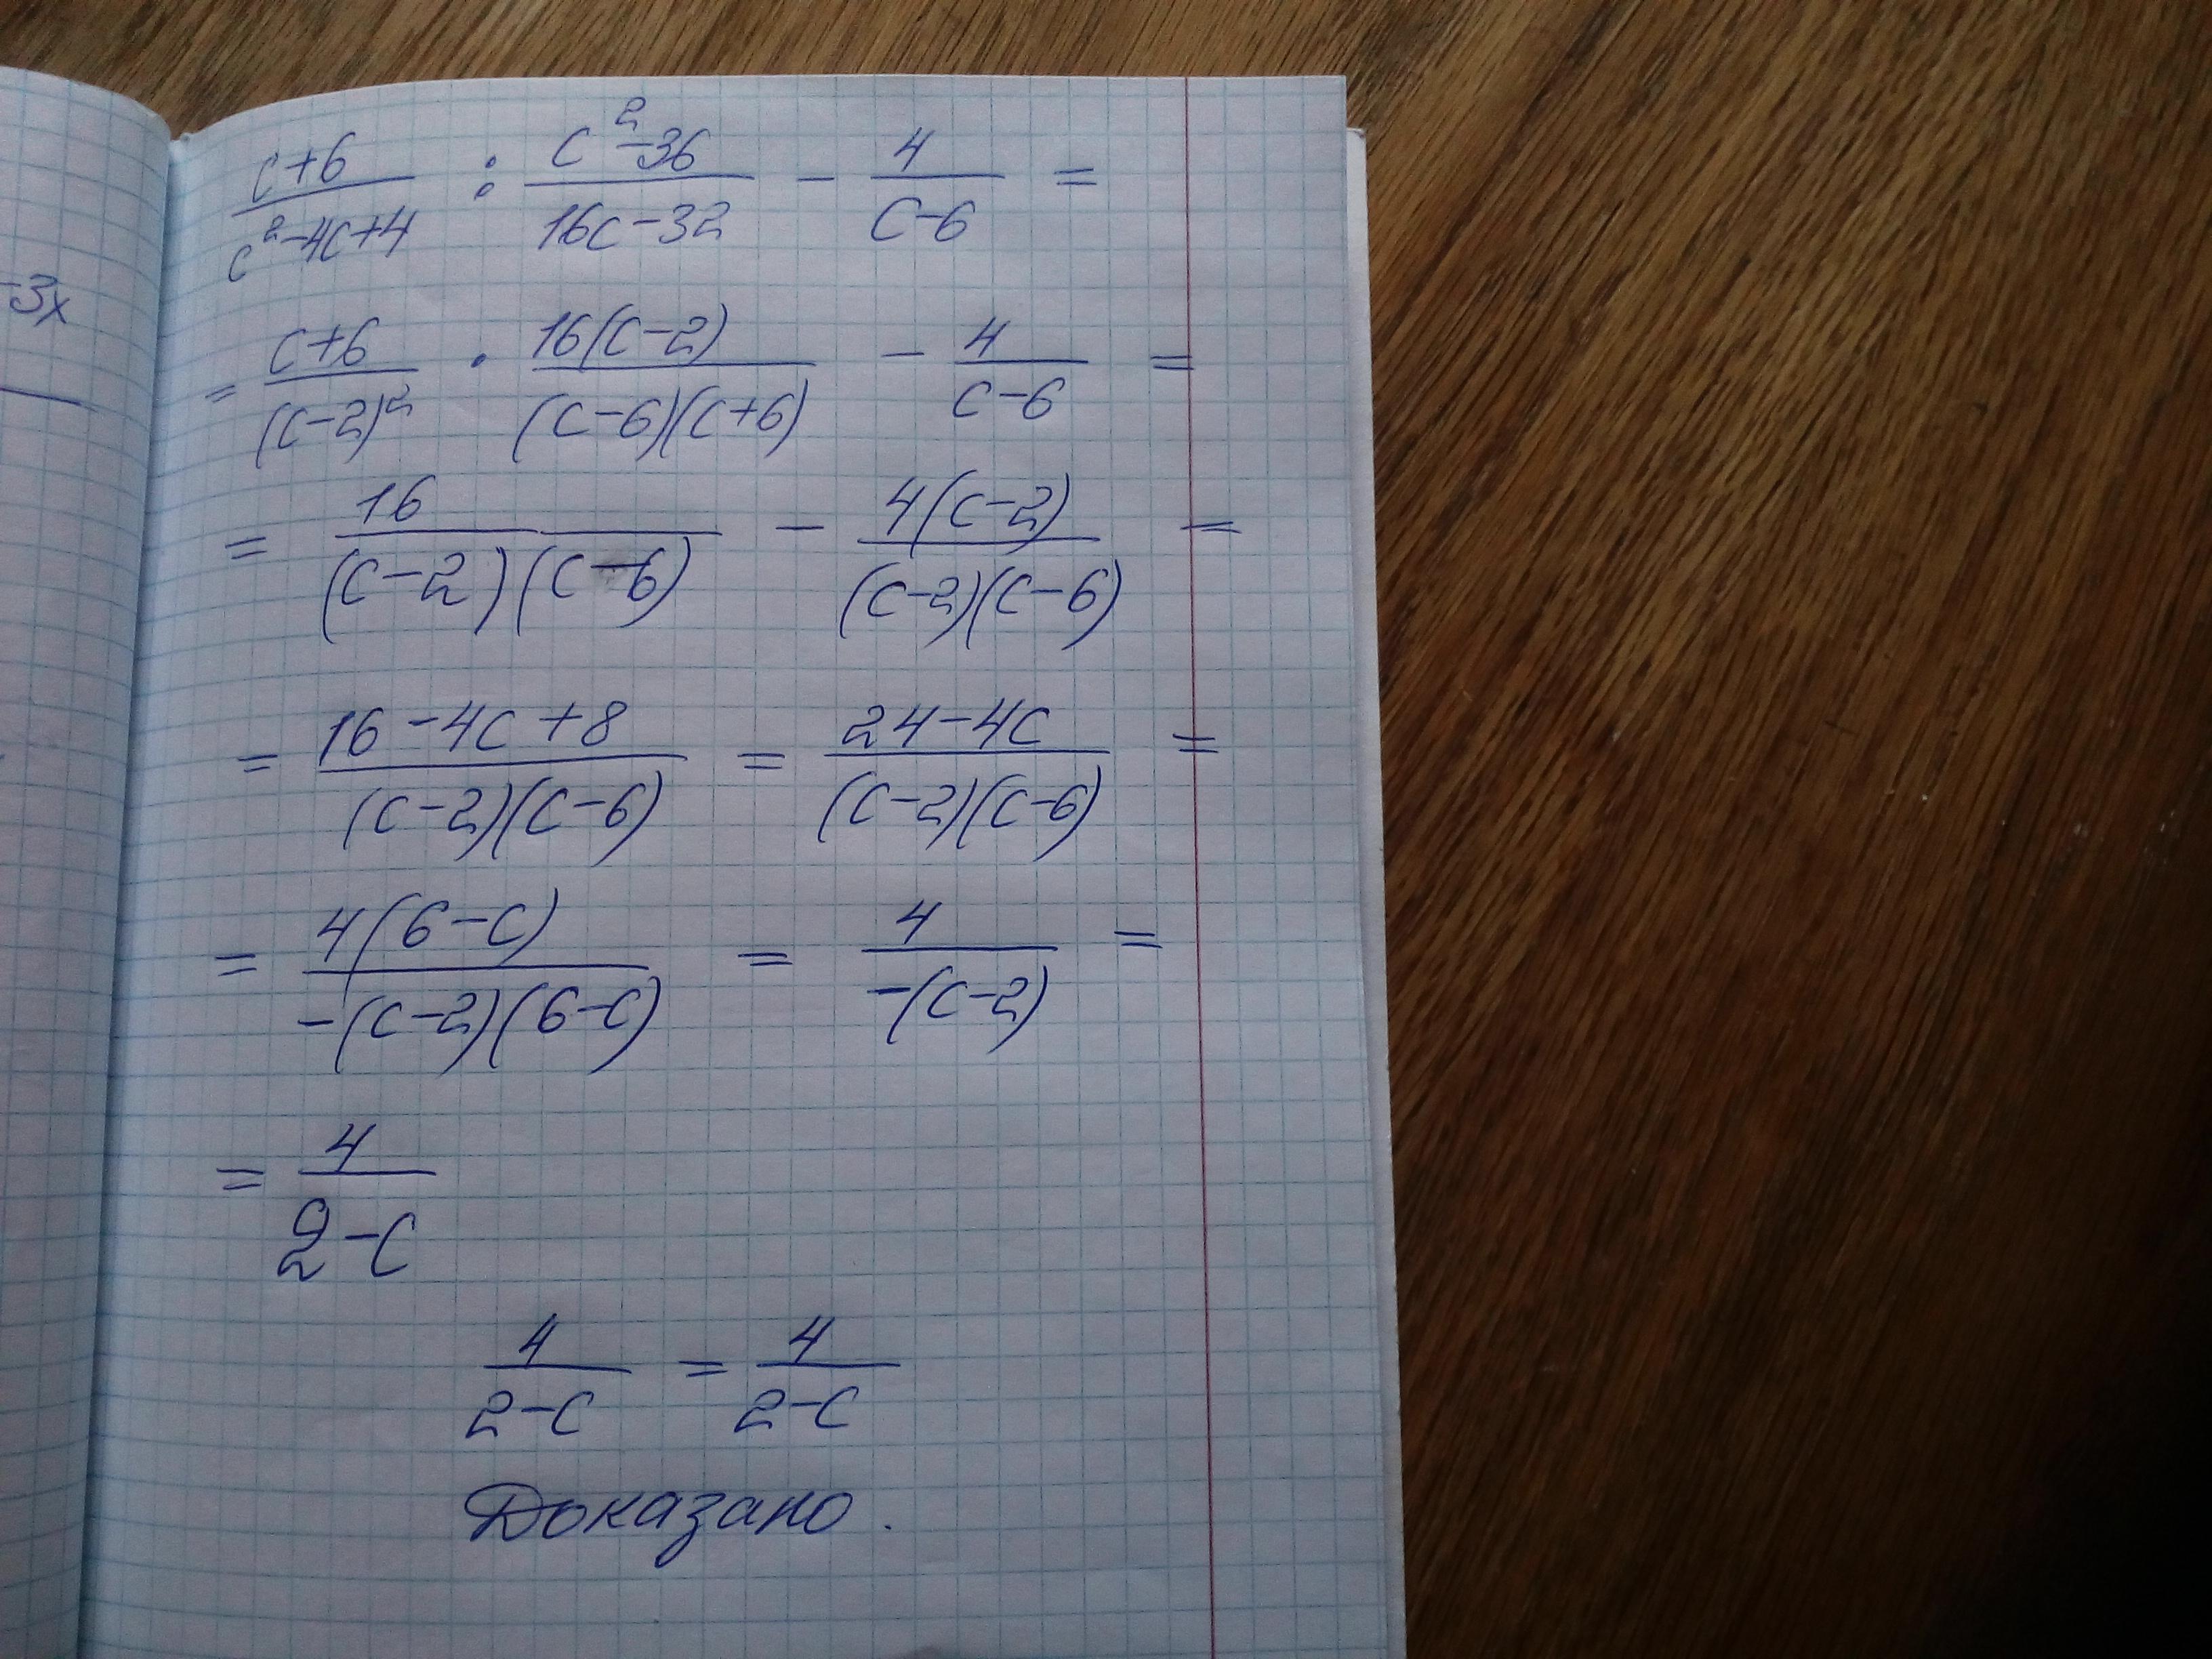 -3x
(c+6)/(c²-4c+4) : (c²-36)/(16c-32) - 4/(c-6) =
= (c+6)/(c-2)² · 16(c-2)/((c-6)(c+6)) - 4/(c-6) =
= 16/((c-2)(c-6)) - 4(c-2)/((c-2)(c-6)) =
= (16-4c+8)/((c-2)(c-6)) = (24-4c)/((c-2)(c-6)) =
= 4(6-c)/(-(c-2)(6-c)) = 4/(-(c-2)) =
= 4/(2-c)
4/(2-c) = 4/(2-c)
Доказано.